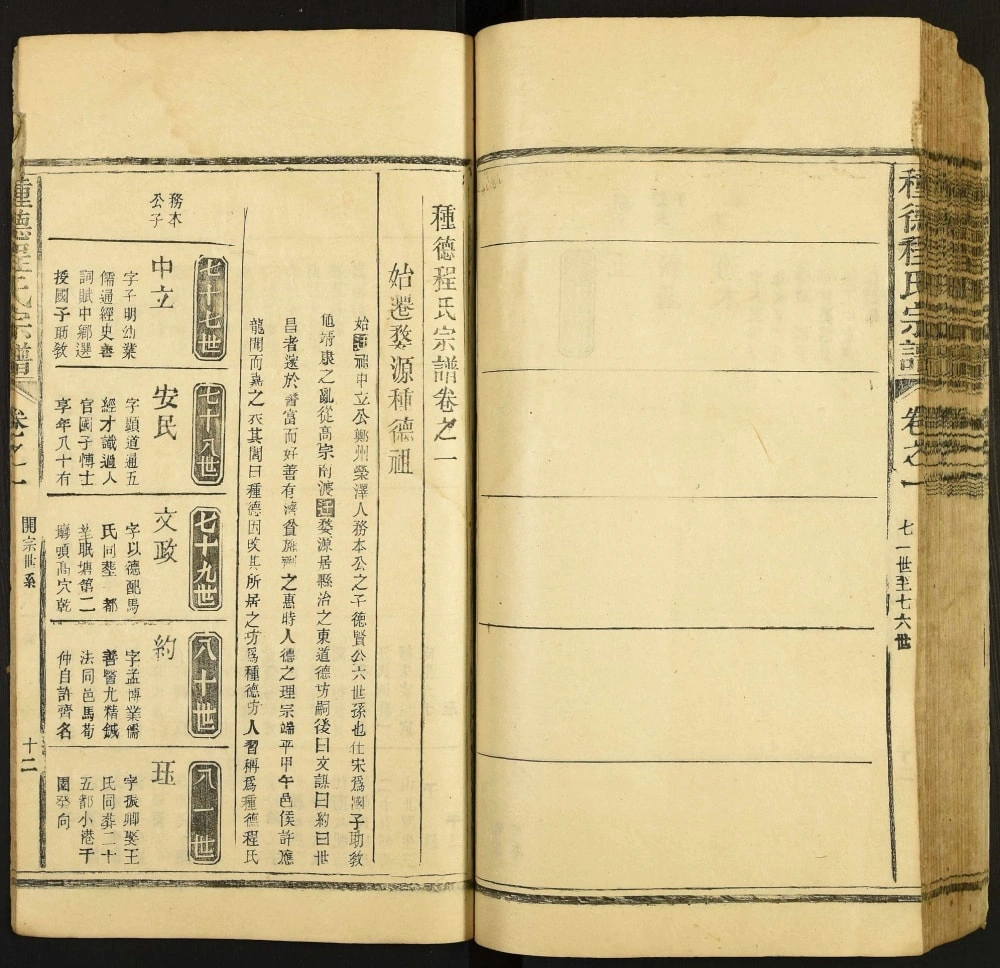 種德程氏宗譜
卷之一
七一世至七六世
種德程氏宗譜卷之一
始遷婺源種德祖
始遷祖中立公鄭州滎澤人務本公之子德賢公六世孫也仕宋爲國子助敎
靖康之亂從高宗南渡遷婺源居縣治之東道德坊嗣後曰文謨曰約曰世
昌者遂於醫富而好善有濟貧施之惠時人德之理宗端平甲午邑侯許應
龍聞而嘉之表其閭曰種德因改其所居之坊爲種德坊人習稱爲種德程氏
七十七世
七十八世
七十九世
八十世
八一世
務本
公子
中立
字子明幼業
儒通經史善
詞賦中鄉選
授國子助敎
安民
字顯道通五
經才識過人
官國子博士
享年八十有
文政
字以德配馬
氏同塟 都
塟眠塘第二
壟頭高穴乾
約
字孟博業儒
善醫尤精鍼
法同邑馬荀
仲自許齊名
珏
字振卿娶王
氏同葬二十
五都小港干
園癸向
種德程氏宗譜
卷之一
開宗世系
十二